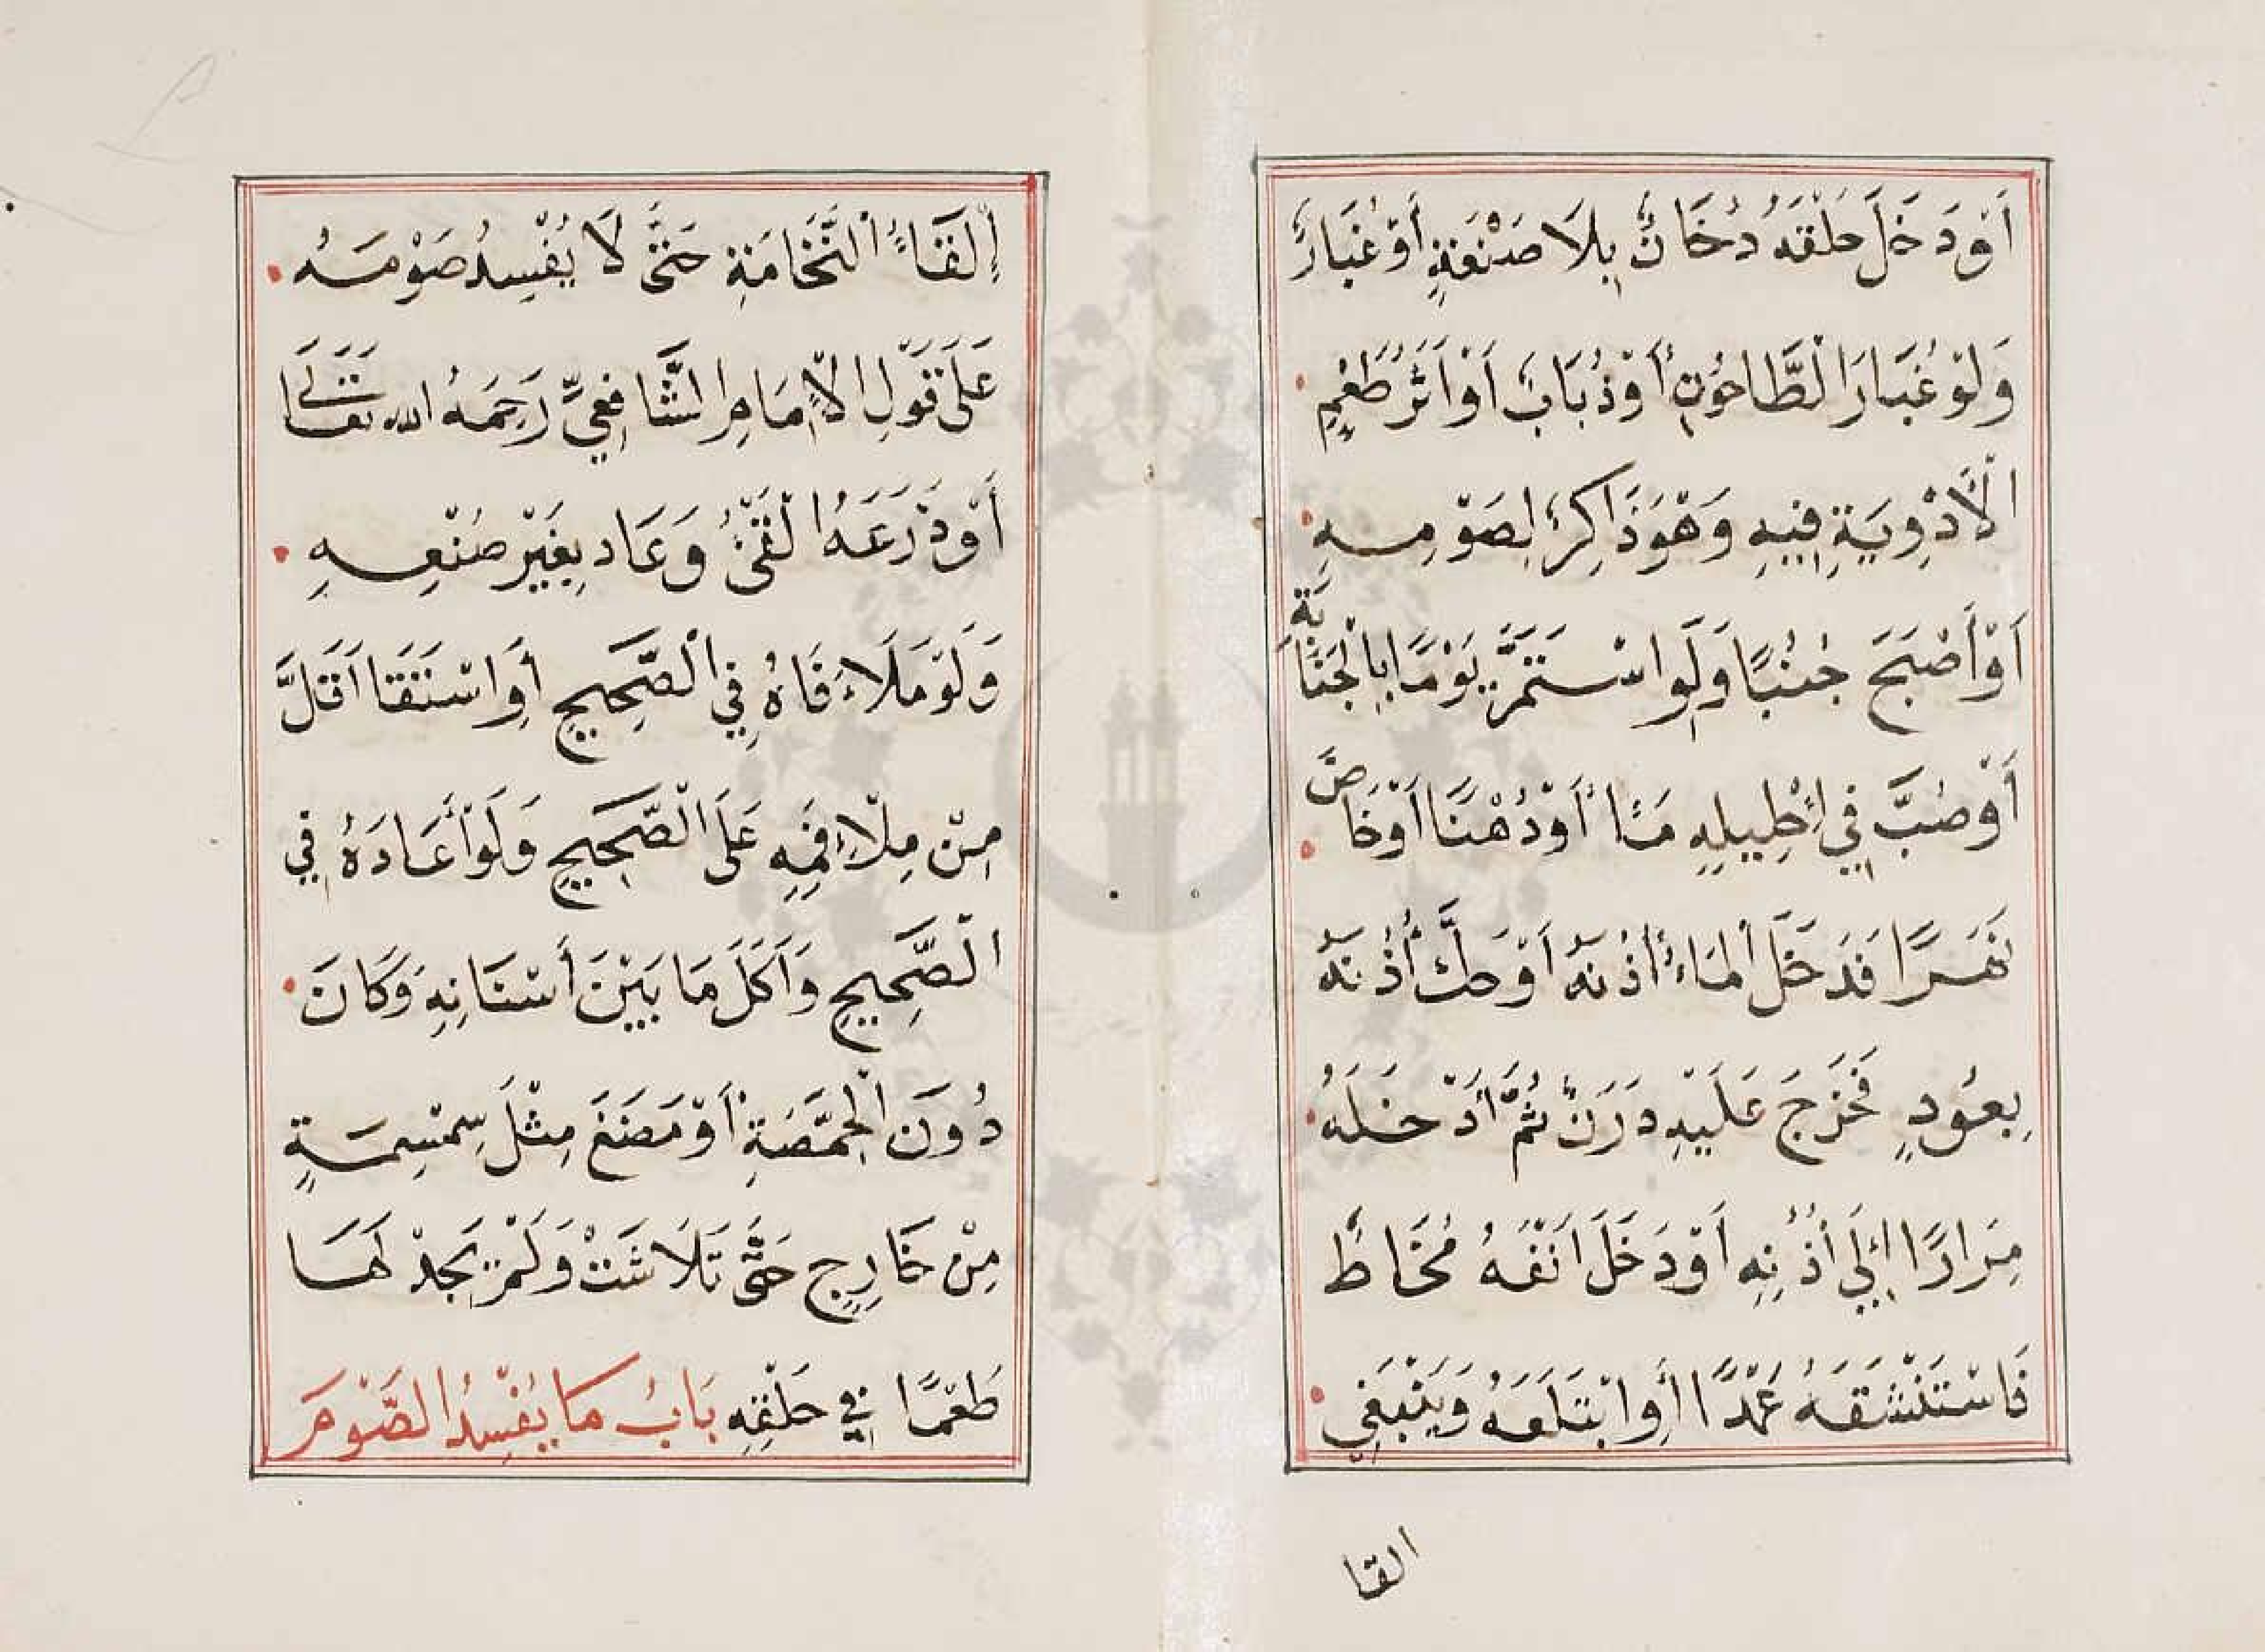 أَوْ دَخَلَ حَلْقَهُ دُخَانٌ بِلَا صَنْعَةٍ أَوْ غُبَارٌ
وَلَوْ غُبَارَ الْطَّاحُونِ أَوْ ذُبَابٌ أَوْ أَثَرُ طَعْمِ
الْأَدْوِيَةِ فِيهِ وَهْوَ ذَاكِرٌ لِصَوْمِهِ
أَوْ أَصْبَحَ جُنُبًا وَلَوِ اسْتَمَرَّ يَوْمًا بِالْجَنَابَةِ
أَوْ صُبَّ فِي إِحْلِيلِهِ مَاءً أَوْ دُهْنًا أَوْ خَاضَ
نَهَرًا فَدَخَلَ الْمَاءُ أُذُنَهُ أَوْ حَكَّ أُذُنَهُ
بِعُودٍ فَخَرَجَ عَلَيْهِ دَرَنٌ ثُمَّ أَدْخَلَهُ
مِرَارًا إِلَى أُذُنِهِ أَوْ دَخَلَ أَنْفَهُ مُخَاطٌ
فَاسْتَنْشَقَهُ عَمْدًا أَوِ ابْتَلَعَهُ وَيَنْبَغِي
القا
إِلْقَاءُ الْنُّخَامَةِ حَتَّى لَا يُفْسِدُ صَوْمَهُ
عَلَى قَوْلِ الْإِمَامِ الشَّافِعِيِّ رَحِمَهُ الله تَعَالَى
أَوْ ذَرَعَهُ الْقَيْءُ وَعَاد بِغَيْرِ صُنْعِهِ
وَلَوْ مَلَاءَ فَاهُ فِي الْصَّحِيحِ أَوِ اسْتَقَا أَقَلَّ
مِنْ مِلْاءِ فَمِهِ عَلَى الْصَّحِيحِ وَلَوْ أَعَادَهُ فِي
الْصَّحِيحِ وَأَكَلَ مَا بَيْنَ أَسْنَانِهِ وَكَانَ
دُونَ الْحِمَّصَةِ أَوْ مَضَغَ مِثْلَ سِمْسِمَةٍ
مِنْ خَارِجٍ حَتَّى تَلَاشَتْ وَلَمْ يَجِدْ لَهَا
طَعْمًا فِي حَلْقِهِ بَابُ مَا يُفْسِدُ الصَّوْمَ